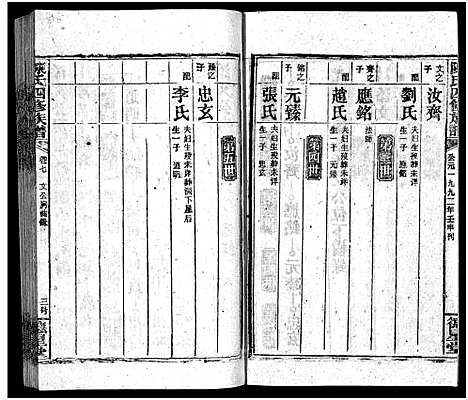 陳氏四修族譜
公元一九九二年壬申刊
德星堂
文之子
汝齊
配
劉氏
夫妇生殁未详
生一子 應銘
第三世
齊之子
應銘
法師
配
趙氏
夫妇生殁未详
生一子 元臻
第四世
銘之子
元臻
配
張氏
夫妇生殁未详
生一子 忠玄
第五世
臻之子
忠玄
配
李氏
夫妇生殁未详
生一子
陳氏四修族譜
卷七
文公房齒錄
德星堂